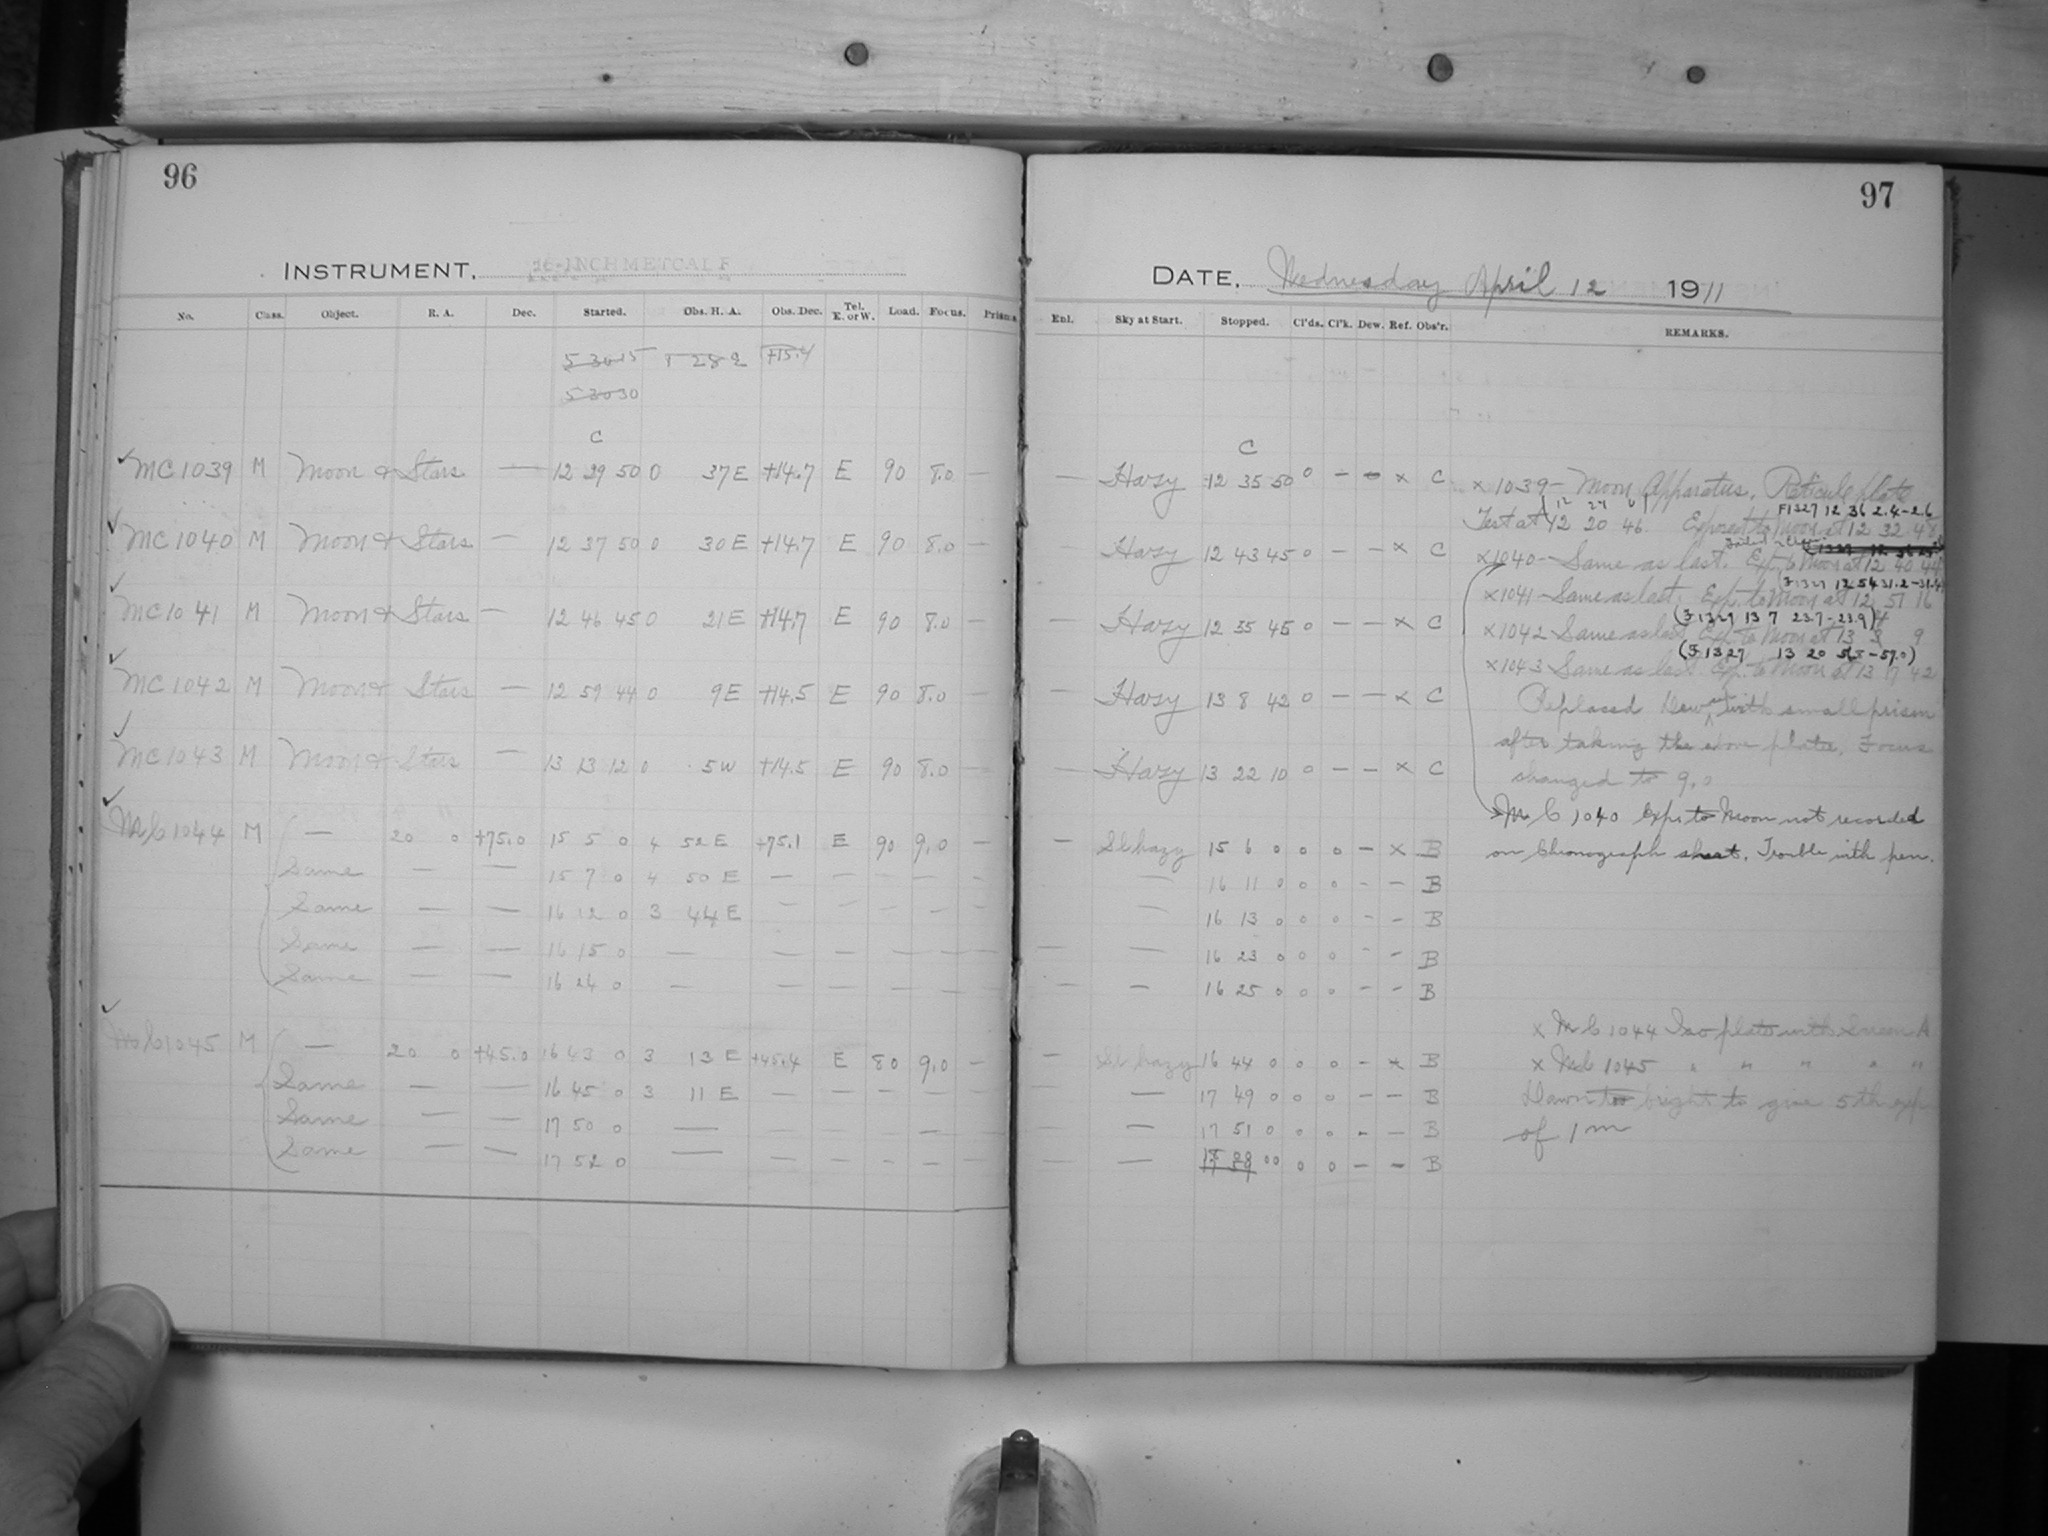 96
INSTRUMENT. 16-INCH METCALF
No. Class. Object. R. A. Dec. Started. Obs. H. A. Obs. Dec. Tel. E. or W. Load. Focus. Prisms
5 30 15 1 28 2 +15.4
5 30 30
C
✓ MC 1039 M Moon & Stars — 12 29 50 0 37 E +14.7 E 90 8.0 —
✓ MC 1040 M Moon & Stars — 12 37 50 0 30 E +14.7 E 90 8.0 —
✓ MC 1041 M Moon & Stars — 12 46 45 0 21 E +14.7 E 90 8.0 —
✓ MC 1042 M Moon & Stars — 12 59 44 0 9 E +14.5 E 90 8.0 —
✓ MC 1043 M Moon & Stars — 13 13 12 0 5 W +14.5 E 90 8.0 —
✓ MC 1044 M — 20 0 +75.0 15 5 0 4 52 E +75.1 E 90 9.0 —
Same — — 15 7 0 4 50 E — — — — —
Same — — 16 12 0 3 44 E — — — — —
Same — — 16 15 0 — — — — — —
Same — — 16 24 0 — — — — — —
✓ MC 1045 M — 20 0 +45.0 16 43 0 3 13 E +45.4 E 80 9.0 —
Same — — 16 45 0 3 11 E — — — — —
Same — — 17 50 0 — — — — — —
Same — — 17 52 0 — — — — — —
97
DATE. Wednesday April 12 1911
Enl. Sky at Start. Stopped. Cl'ds. Cl'k. Dew. Ref. Obs'r. REMARKS.
C
— Hazy 12 35 50 0 — — × C
— Hazy 12 43 45 0 — — × C
— Hazy 12 55 45 0 — — × C
— Hazy 13 8 42 0 — — × C
— Hazy 13 22 10 0 — — × C
— Sl. hazy 15 6 0 0 0 — × B
— 16 11 0 0 0 — — B
— 16 13 0 0 0 — — B
— — 16 23 0 0 0 — — B
— — 16 25 0 0 0 — — B
— Sl. hazy 16 44 0 0 0 — × B
— 17 49 0 0 0 — — B
— 17 51 0 0 0 — — B
— 0 0 0 — — B
× 1039 — Moon Apparatus. Reticule plate
F1327 12 36 2.4-2.6
Test at 12 20 46. Exposed to moon at 12 32 48
× 1040 — Same as last. Exp. to Moon at 12 40 44
(F1327 12 54 31.2-31.4)
× 1041 — Same as last. Exp. to Moon at 12 51 16
(F1327 13 7 23.7-23.9)
× 1042 Same as last Exp. to Moon at 13 3 9
(F1327 13 20 56.8-57.0)
× 1043 Same as last. Exp. to Moon at 13 17 42
Replaced Dew with small prism
after taking the above plates, Focus
changed to 9.0
MC 1040 Exp. to Moon not recorded
on Chronograph sheet. Trouble with pen.
× MC 1044 Iso plate with Screen A
× MC 1045 " " " " "
Dawn too bright to give 5th exp.
of 1m